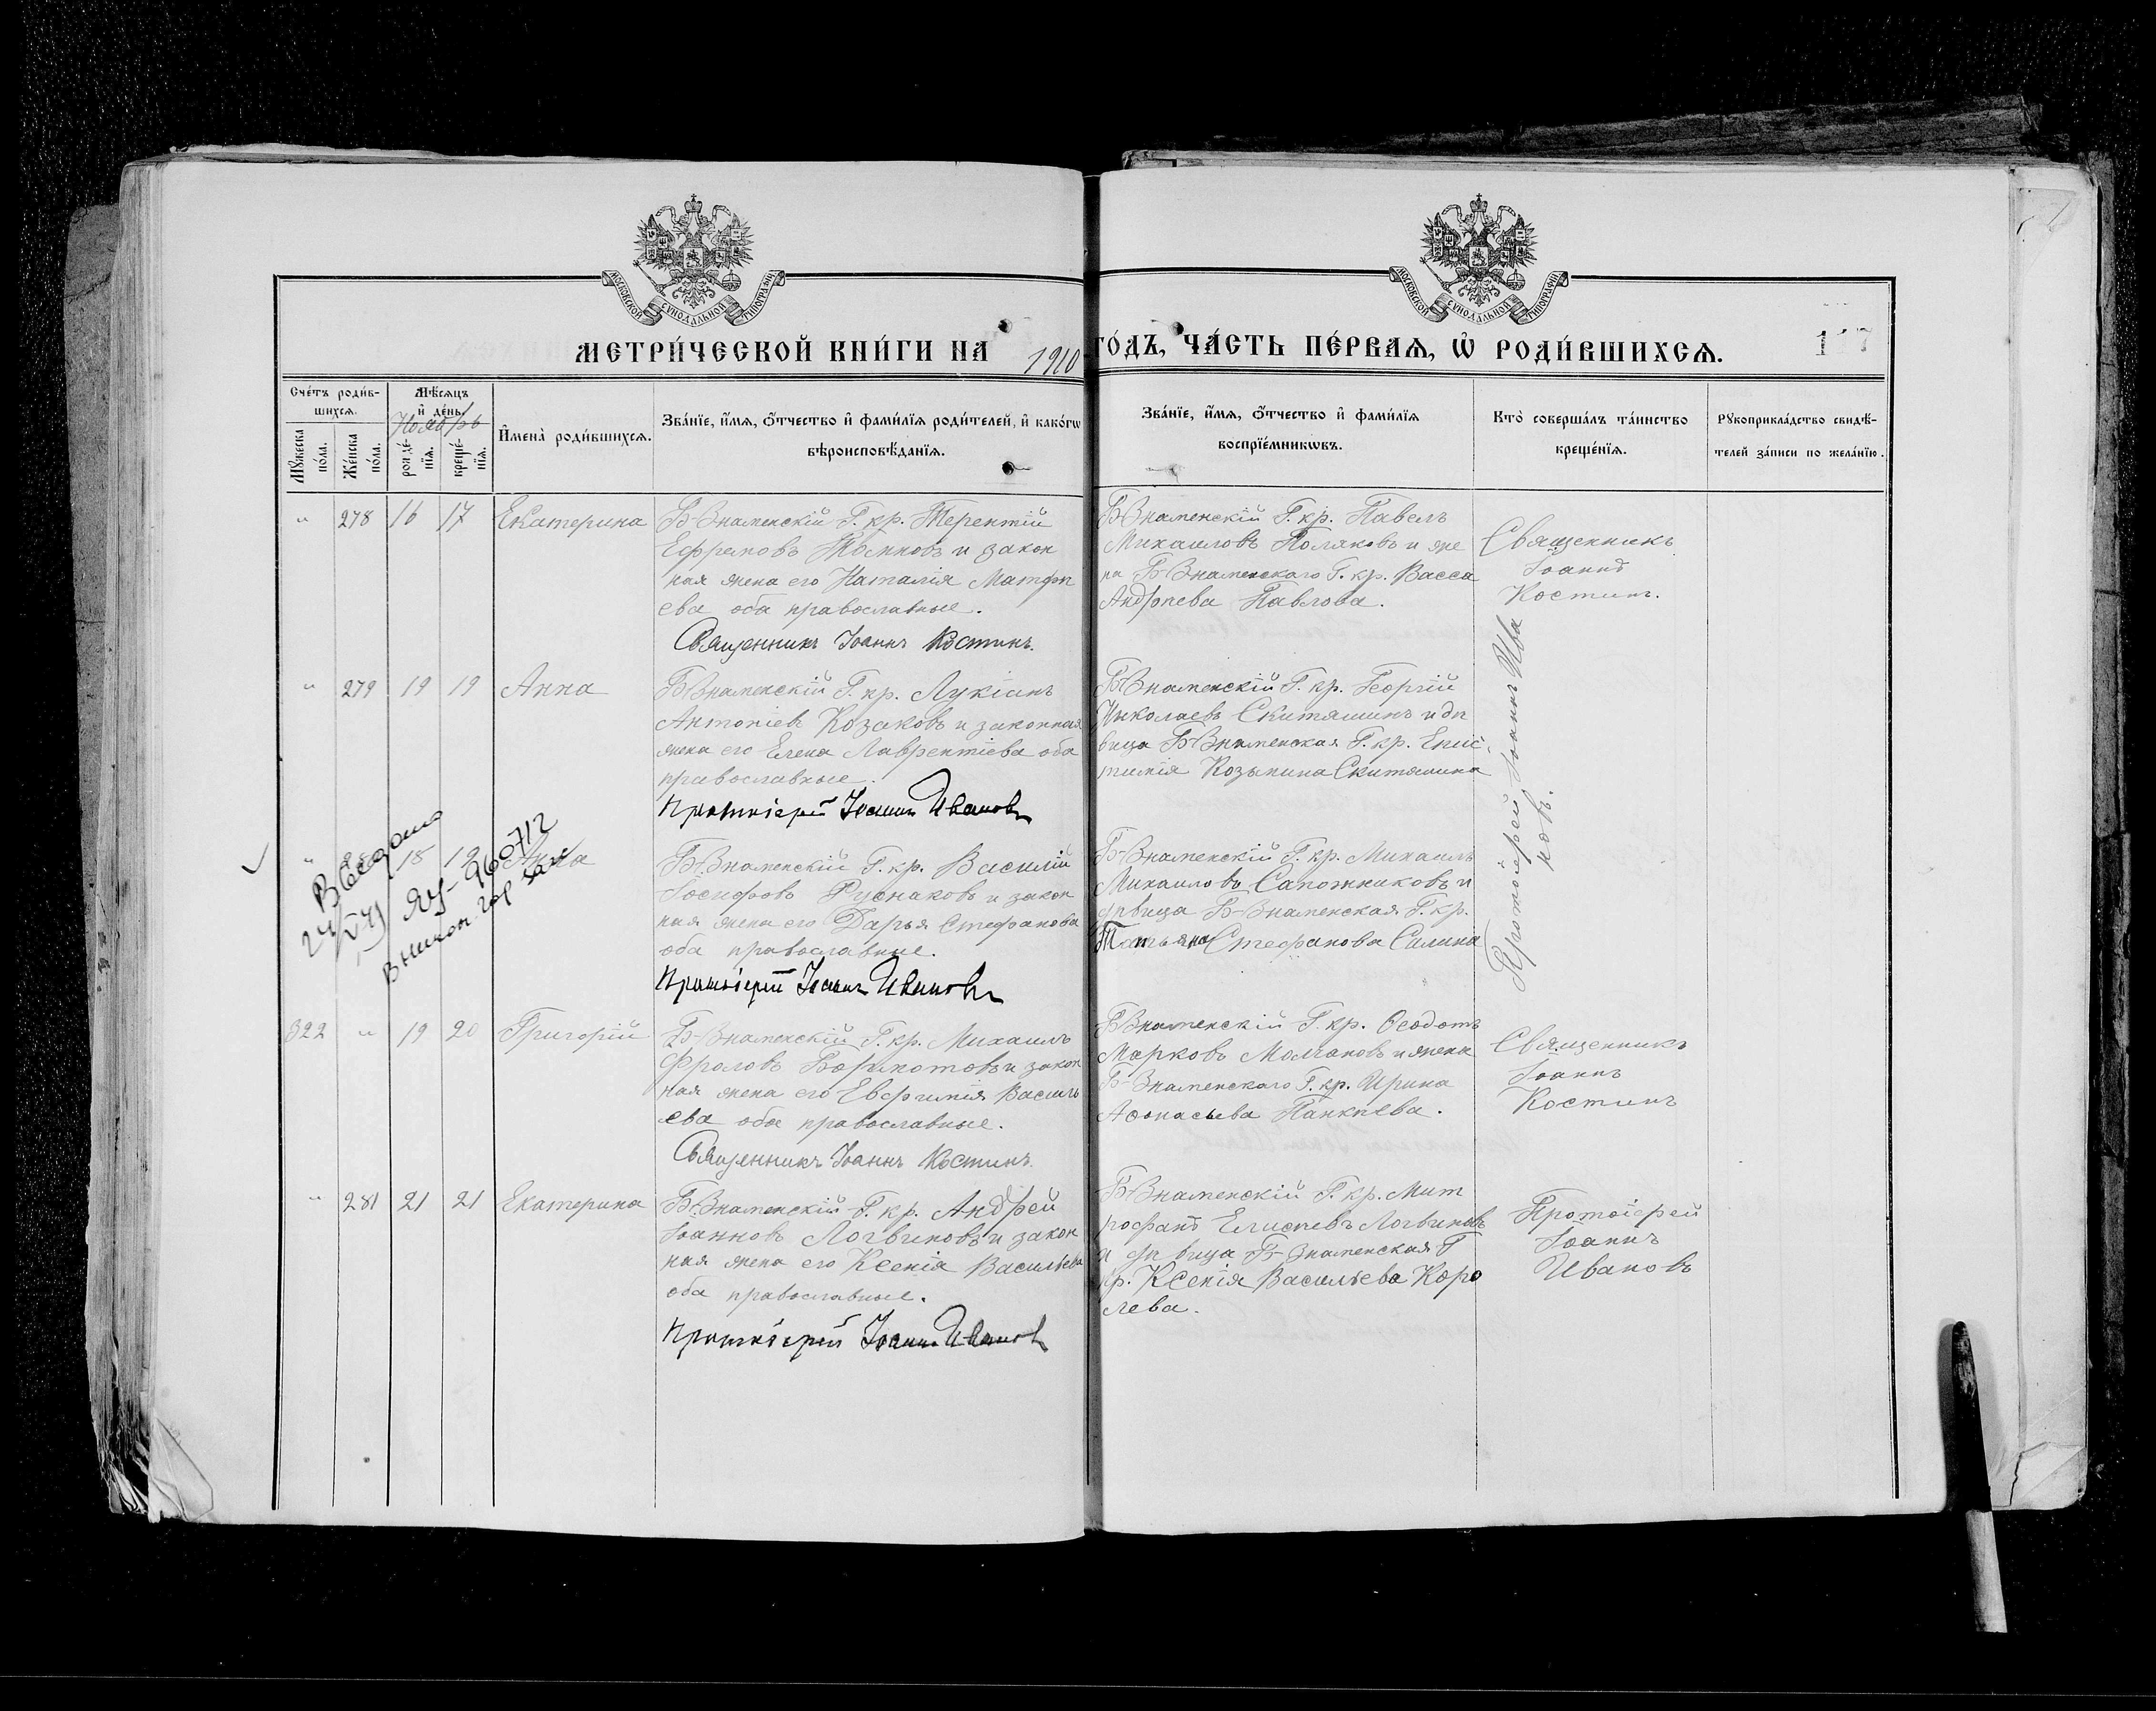 МОСКОВСКОЙ СѴНОДАЛЬНОЙ ТИПОГРАФИИ
МОСКОВСКОЙ СѴНОДАЛЬНОЙ ТИПОГРАФИИ
МЕТРИ́ЧЕСКОЙ КНИ́ГИ НА 1910 ГО́ДЪ, ЧА́СТЬ ПЕ́РВАѦ, Ѡ҆ РОДИ́ВШИХСѦ.
Сче́тъ роди́в-
шихсѧ.
Мꙋ́жеска по́ла.
Же́нска по́ла.
Мѣ́сѧцъ
и҆ де́нь.
Ноябрь
рожде́-
нїѧ.
креще́-
нїѧ.
И҆мена̀ роди́вшихсѧ.
Зва́нїе, и҆́мѧ, ѻ҆́тчество и҆ фами́лїѧ роди́телей, и҆ како́гѡ
вѣроисповѣ́данїѧ.
Зва́нїе, и҆́мѧ, ѻ҆́тчество и҆ фами́лїѧ
воспрїе́мникѡвъ.
Кто̀ соверша́лъ та́инство
креще́нїѧ.
Рꙋкоприкла́дство свидѣ́-
телей за́писи по жела́нїю.
„ 278 16 17 Екатерина
Б-Знаменскій Г. кр. Терентій
Ефремовъ и закон
ная жена его Наталія Матфѣ
ева оба православные.
Священникъ Іоаннъ Костинъ.
Б-Знаменскій Г. кр. Павелъ
Михаиловъ Поляковъ и же
на Б-Знаменскаго Г. кр. Васса
Андреева Павлова.
Священникъ
Іоаннъ
Костинъ.
„ 279 19 19 Анна
Б-Знаменскій Г. кр. Лукіанъ
Антоніевъ Козаковъ и законная
жена его Елена Лаврентіева оба
православные.
Протоіерей Іоаннъ Ивановъ
Б-Знаменскій Г. кр. Георгій
Николаевъ Скитяшинъ и дѣ
вица Б-Знаменская Г. кр. Епис
тимія Козьмина Скитяшина
Протоіерей Іоаннъ Ива
новъ.
„ 18 19 Анна
Б-Знаменскій Г. кр. Василій
Іосифовъ Руснаковъ и закон
ная жена его Дарья Стефанова
оба православные.
Протоіерей Іоаннъ Ивановъ
Б-Знаменскій Г. кр. Михаилъ
Михаиловъ Сапожниковъ и
дѣвица Б-Знаменская Г. кр.
Татьяна Стефанова Силина
322 „ 19 20 Григорій
Б-Знаменскій Г. кр. Михаилъ
Фроловъ и закон
ная жена его Евфимія Василь
ева оба православные.
Священникъ Іоаннъ Костинъ.
Б-Знаменскій Г. кр. Ѳеодотъ
Марковъ Молчановъ и жена
Б-Знаменскаго Г. кр. Ирина
Аѳонасьева Панкѣева.
Священникъ
Іоаннъ
Костинъ
„ 281 21 21 Екатерина
Б-Знаменскій Г. кр. Андрей
Іоанновъ Логвиновъ и закон
ная жена его Ксенія Васильева
оба православные.
Протоіерей Іоаннъ Ивановъ
Б-Знаменскій Г. кр. Мит
рофанъ Елисѣевъ Логвиновъ
и дѣвица Б-Знаменская Г
кр. Ксенія Васильева Коро
лева.
Протоіерей
Іоаннъ
Ивановъ